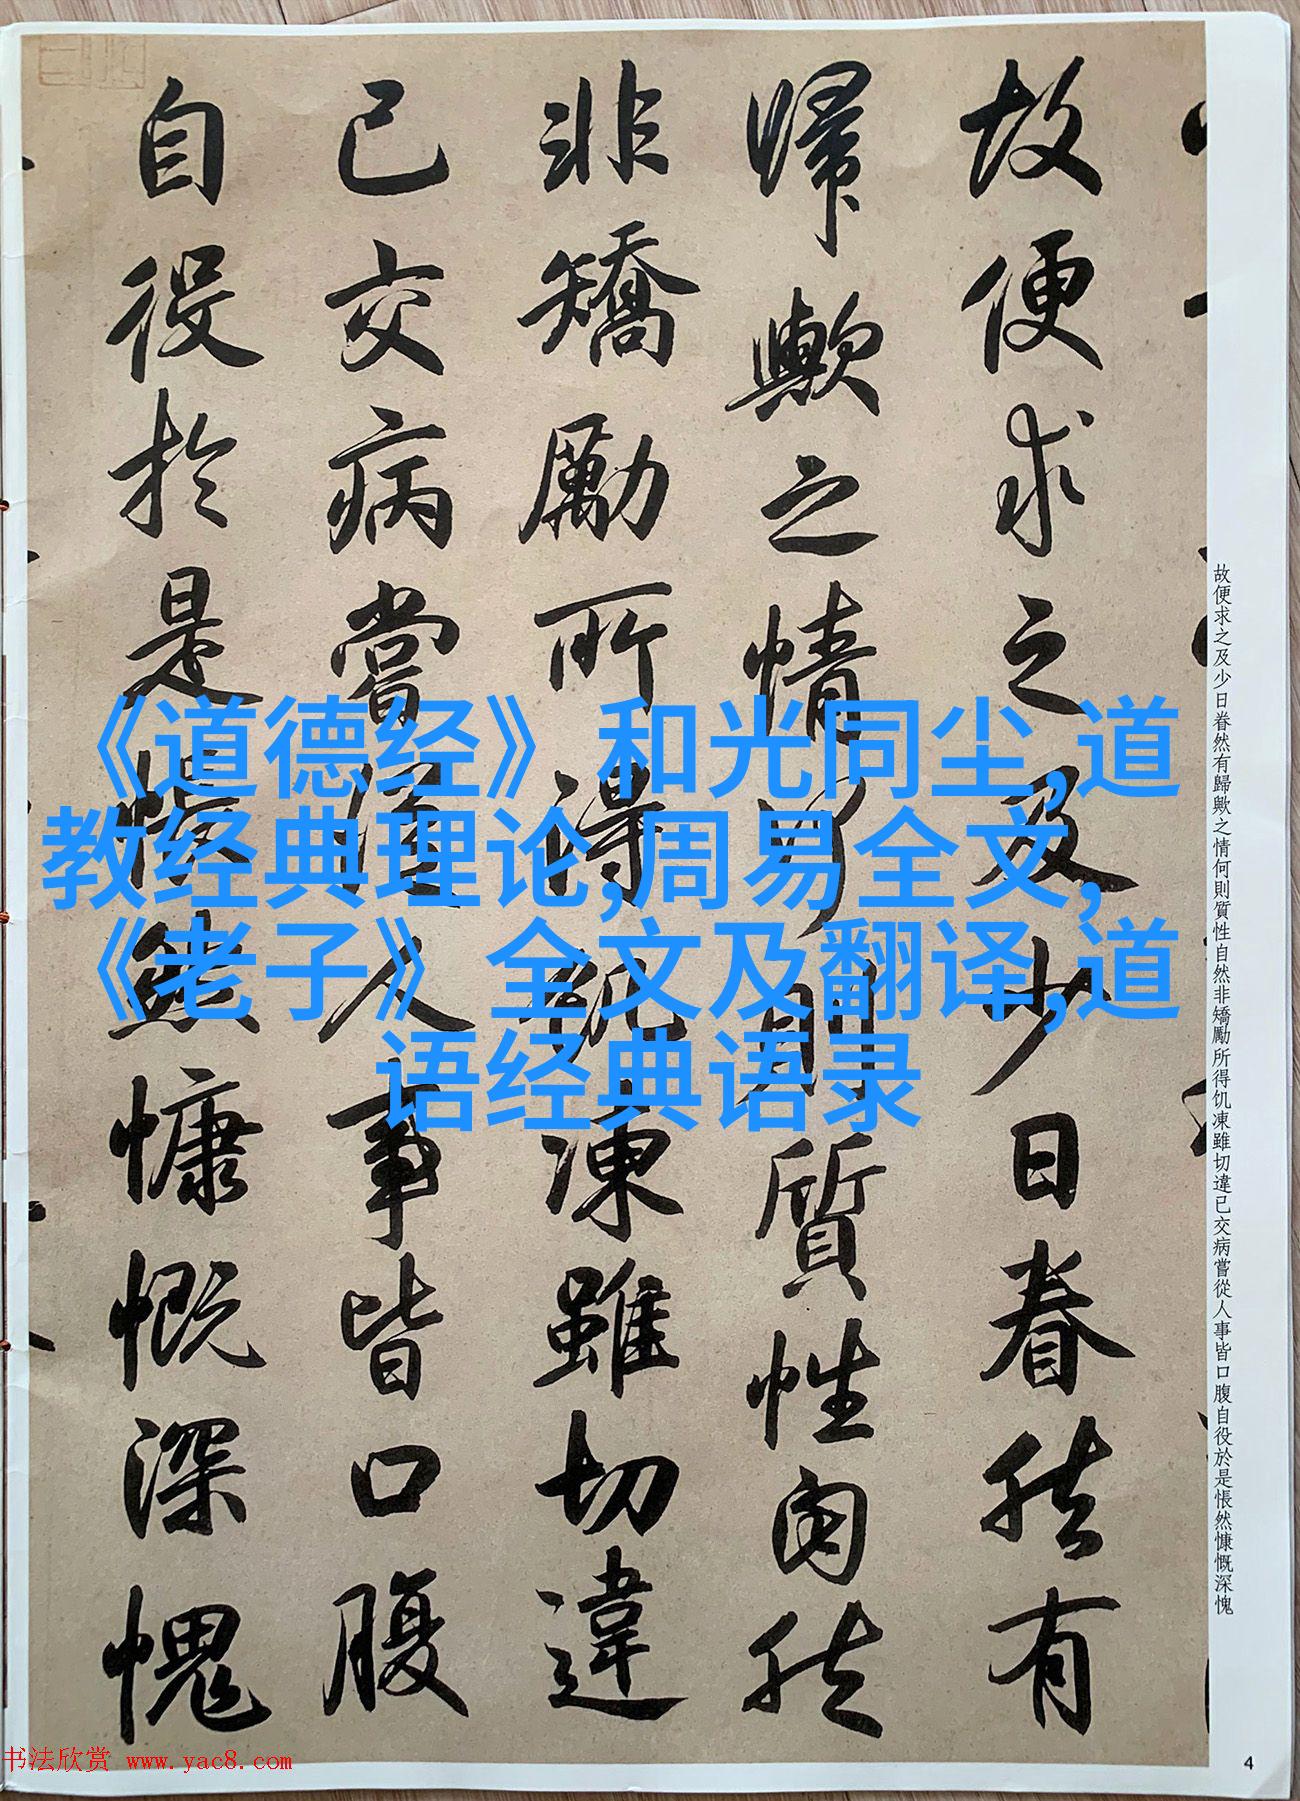 故便求之及少日眷然有
歸歟之情何則質性自然
非矯勵所得飢凍雖切違
已交病嘗從人事皆口腹
自役於是悵然慷慨深愧
故便求之及少日眷然有歸歟之情何則質性自然非矯勵所得饥凍雖切違已交病嘗從人事皆口腹自役於是悵然慷慨深愧
《道德经》和光同尘,道
教经典理论,周易全文,
《老子》全文及翻译,道
语经典语录
书法欣赏 www.yac8.com
4